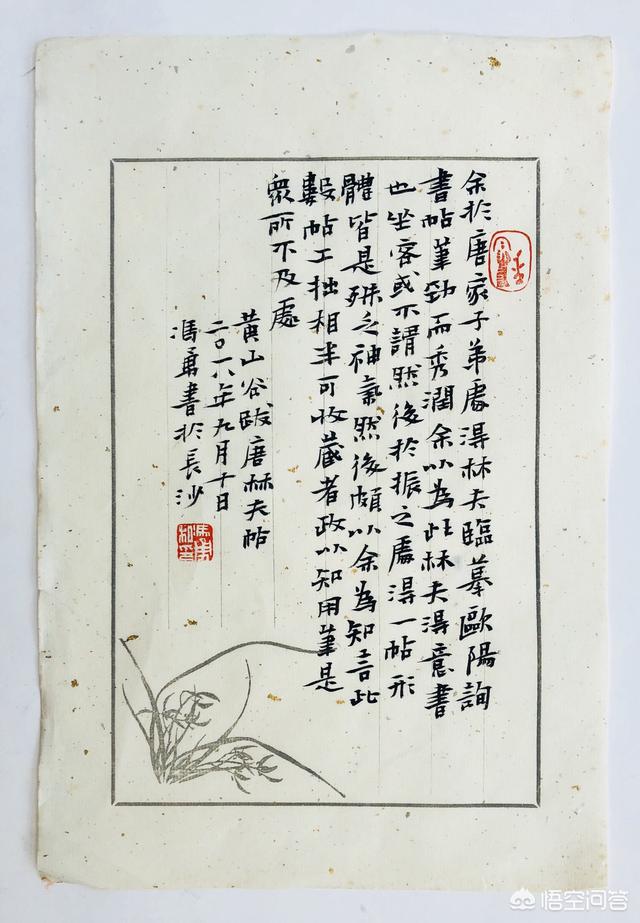 余於唐家子弟處得林夫臨摹歐陽詢
書帖筆勁而秀潤余以為此林夫得意書
也坐客或不謂然後於振之處得一帖形
體皆是殊乏神氣然後頗以余為知言此
數帖工拙相半可收藏者政以知用筆是
眾所不及處
黃山谷跋唐林夫帖
二〇一八年九月十日
馮勇書於長沙
悟空问答